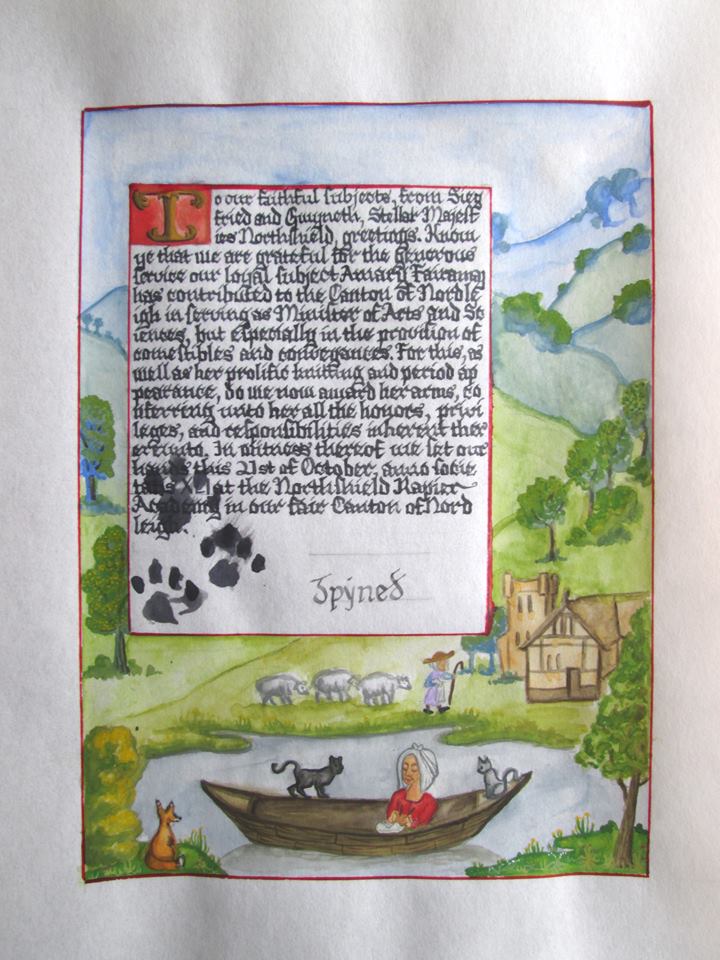 To our faithful subjects, from Sieg
fried and Gwyneth, Stellar Majest
ies Northshield, greetings. Know
ye that we are grateful for the generous
service our loyal subject
has contributed to the Canton of Nordle
igh in serving as Minister of Arts and Sc
iences, but especially in the provision of
comestibles and conveyances. For this, as
well as her prolific knitting and period ap
pearance, do we now award her arms, co
nferring unto her all the honors, privi
leges, and responsibilities inherent ther
ereunto. In witness thereof we set our
hands this 21st of October, anno socie
tatis XLI at the Northshield Rapier
Academy in our fair Canton of Nord
leigh.
Spyned